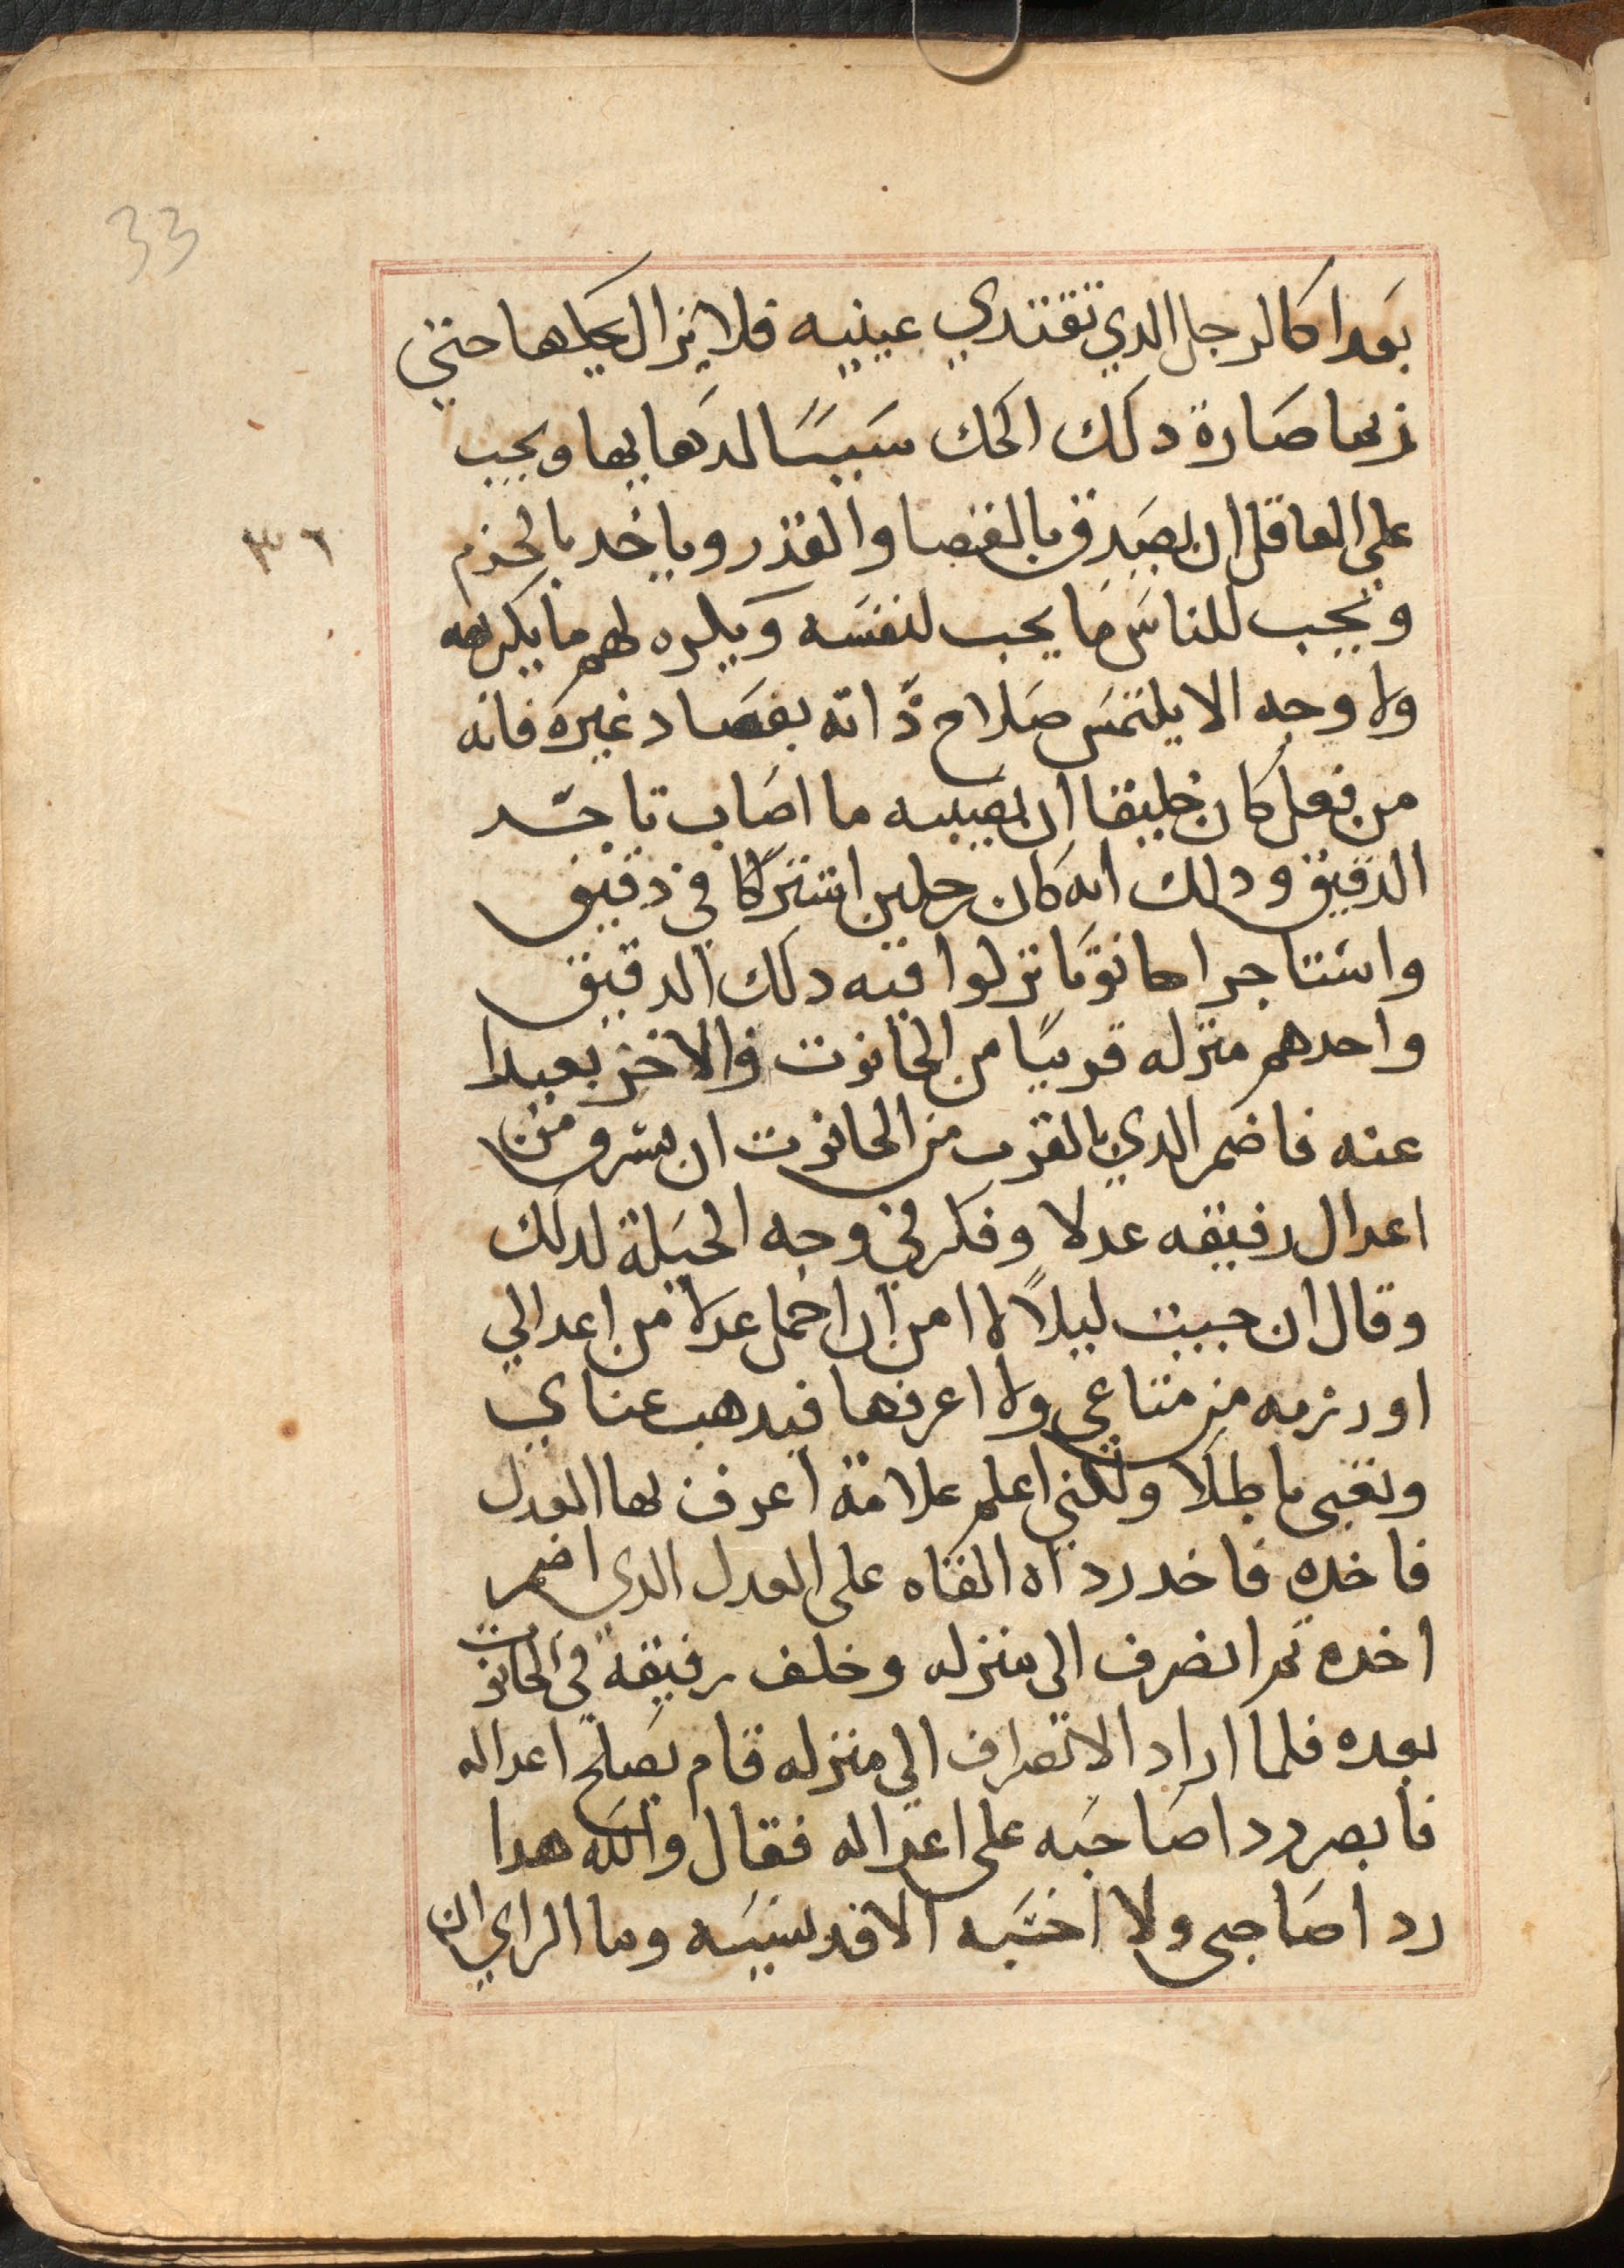 33
بعدا كالرجل الدي تقتدي عينيه فلا يزال يحكها حتي
ربما صارة دلك الحك سببًا لدهابها ويجب
علي العاقل ان يصدق بالقضا والقدر وياخد بالحزم
٣٦
ويحب للناس ما يحب لنفسه ويكره لهم ما يكرهه
ولا وجه الا يلتمس صلاح ذاته بفساد غيره فانه
من فعل كان خليقا ان يصيبه ما اصاب تاجر
الدقيق ودلك انه كان رجلين اشتركا في دقيق
واستاجرا حانوتا نزلوا فيه دلك الدقيق
واحدهم منزله قريبًا من الحانوت والاخر بعيدا
عنه فاضمر الدي بالقرب من الحانوت ان يسرق من
اعدال رفيقه عدلا وفكر في وجه الحيلة لدلك
وقال ان جيت ليلاً لا امن ان احمل عدلا من اعدالي
او رزمه من متاعي ولا اعرفها فيدهب عناي
وتعبي باطلا ولكني اعلم علامة اعرف بها العدل
فاخده فاخد رداه القاه علي العدل الدي اضمر
اخده ثم انصرف الي منزله وخلف رفيقه في الحانوت
بعده فلما اراد الانصراف الي منزله قام يصلح اعداله
فابصر ردا صاحبه علي اعداله فقال والله هدا
ردا صاحبي ولا احسبه الا قد نسيه وما الراي ان